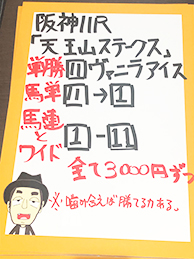 阪神11R
「天王山ステークス」
単勝 11 ヴァニラアイス
馬単 11→1
馬連
と
ワイド 1-11
全て3000円ずつ
※噛み合えば勝てる力ある。